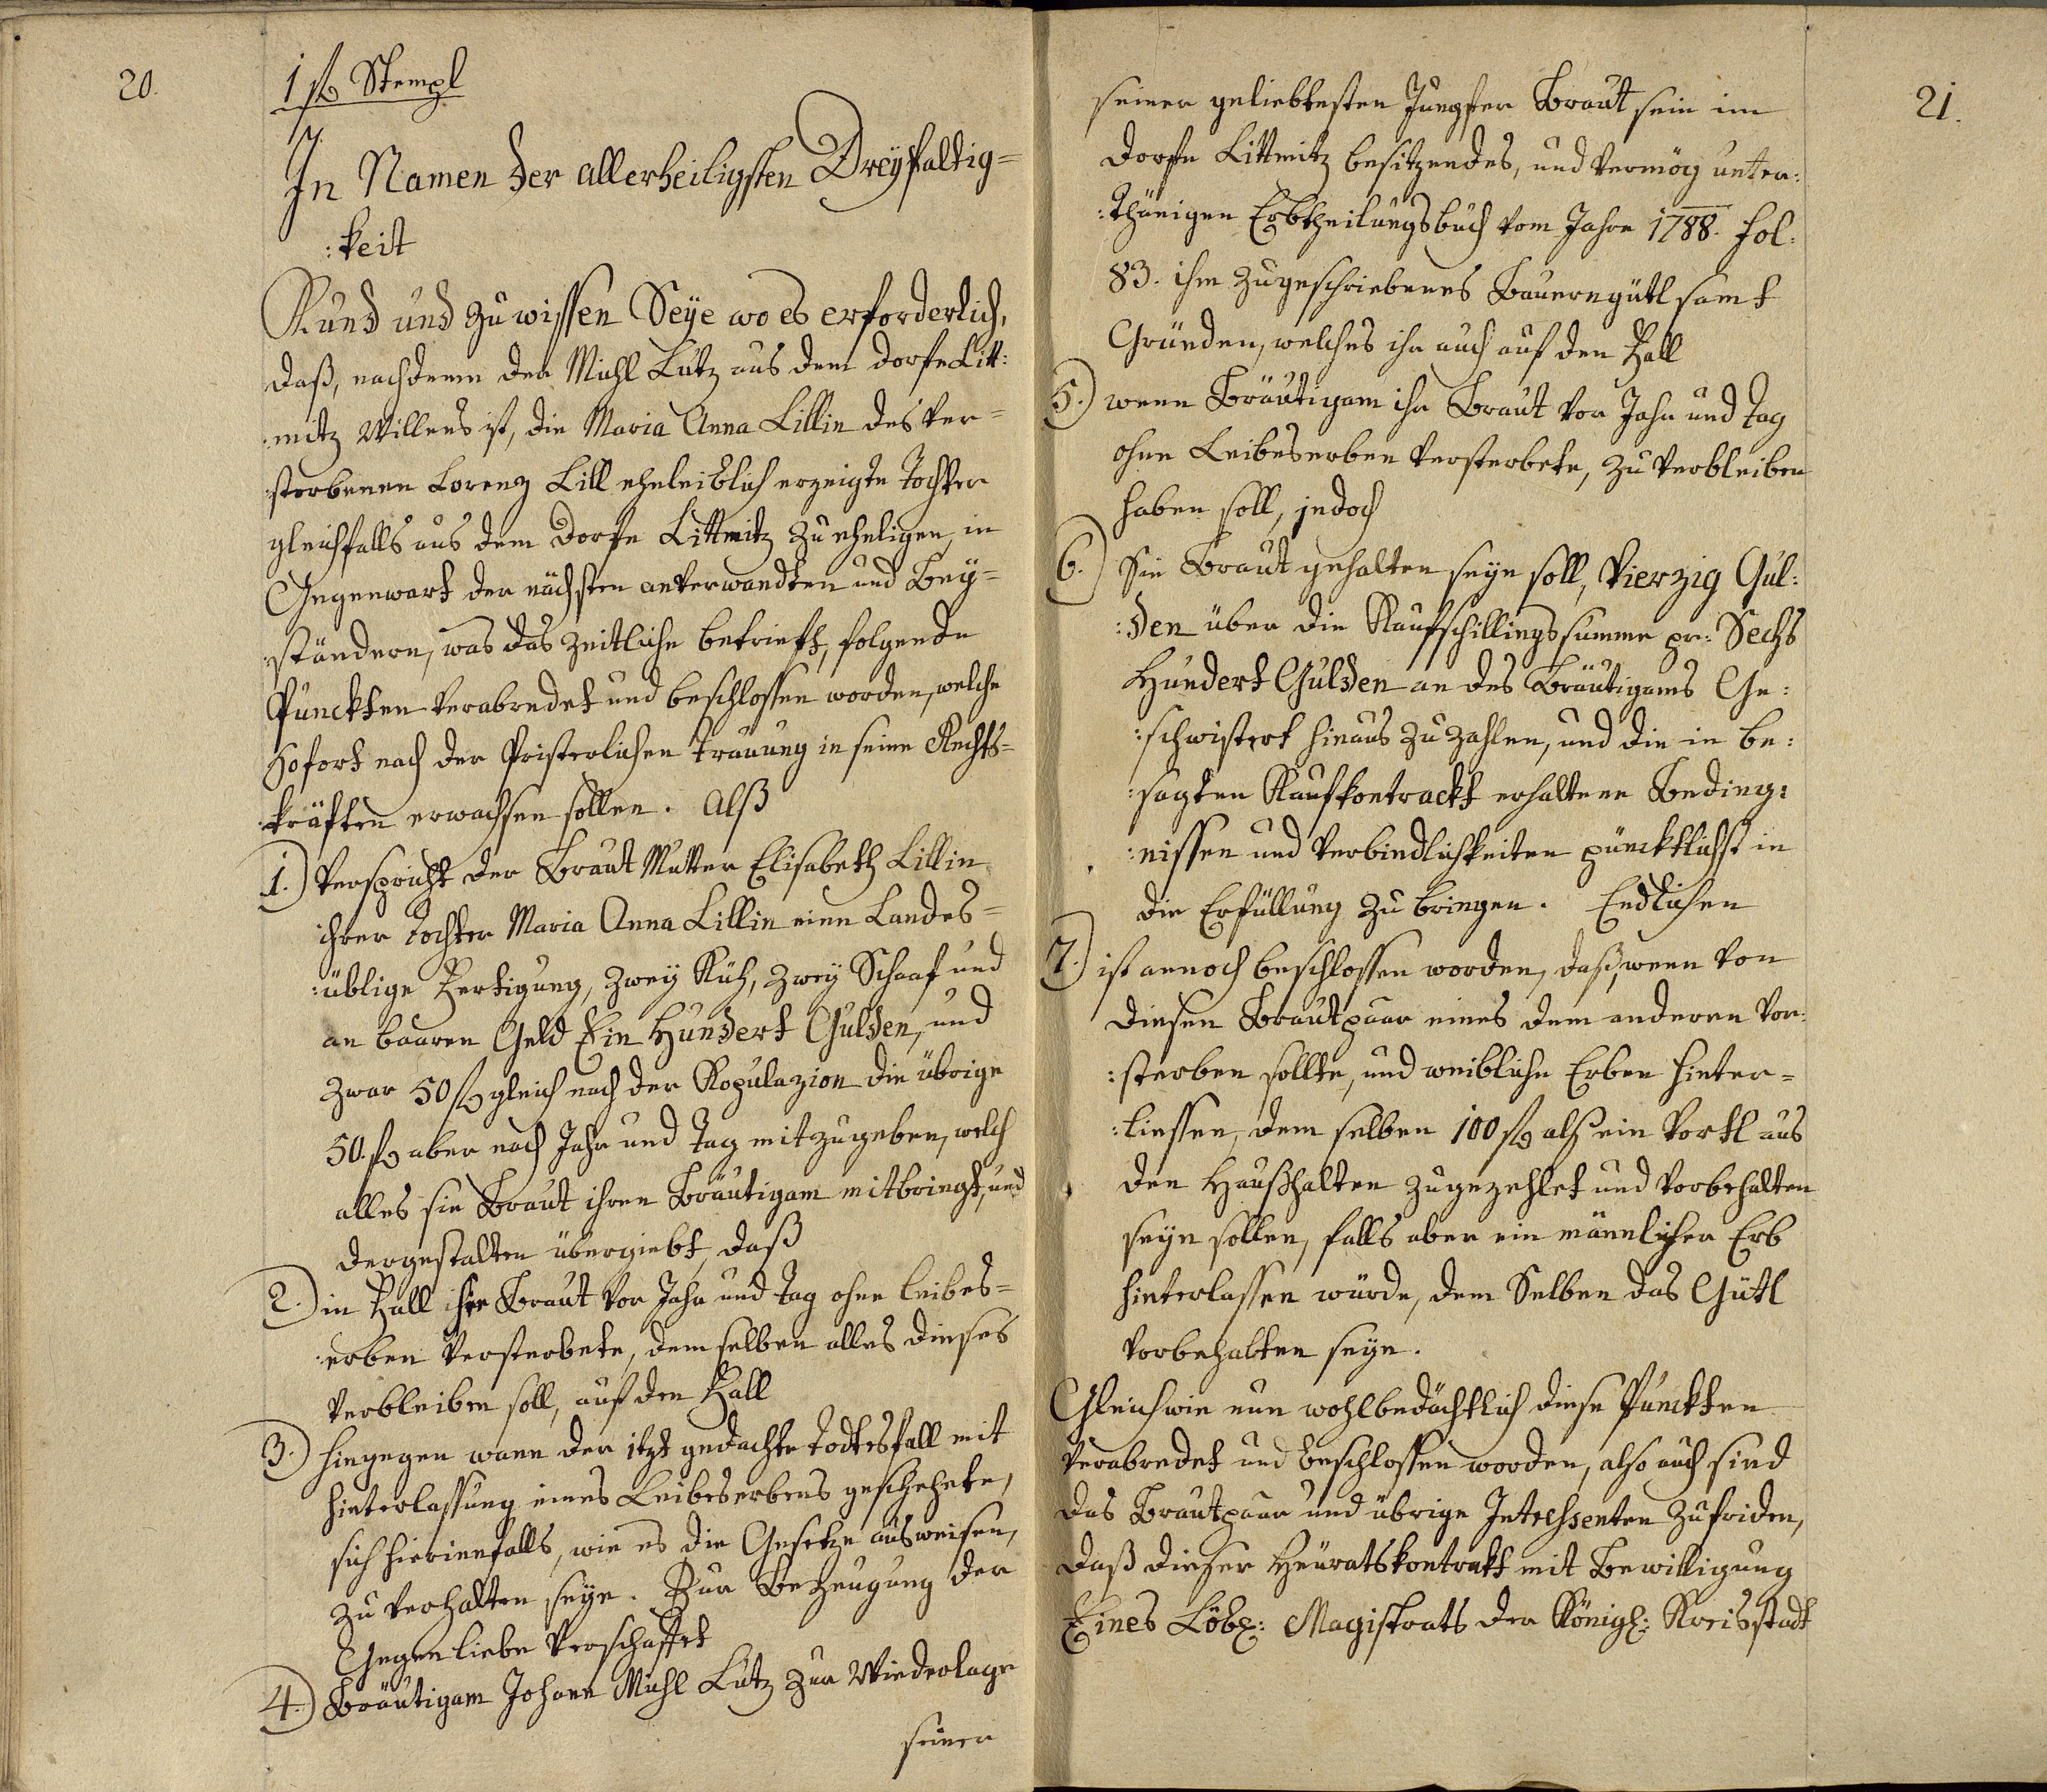 20.
1 fl Stempl
In Namen der allerheiligsten Dreyfaltig=
:keit
Kund und zu wissen Seye wo es erforderlich,
daß, nachdeme der Michl Lutz aus dem Dorfe Litt:
:mitz Willens ist, die Maria Anna Lillin des ver=
:storbenen Lorenz Lill eheleiblich erzeigte Tochter
gleichfalls aus dem Dorfe Littmitz zu eheligen, in
Gegenwart der nächsten anverwandten und Bey=
:ständern, was das zeitliche betrieft, folgende
Punckten verabredet und beschlossen worden, welche
sofort nach der Pristerlichen Trauung in seine Rechts=
:kräften erwachsen sollen. Alß
1.) Verspricht der Braut Mutter Elisabeth Lillin
ihrer Tochter Maria Anna Lillin eine Landes=
:üblige Fertigung, zwey Küh, zwey Schaaf und
an baaren Geld Ein Hundert Gulden, und
zwar 50 fl gleich nach der Kopulazion die übrige
50. fl aber nach Jahr und Tag mitzugeben, welch
alles sie Braut ihren Bräutigam mitbringt, und
dergestalten übergiebt, daß
2.) in Fall ihre Braut vor Jahr und Tag ohne leibes=
:erben versterbete, demselben alles dieses
verbleiben soll, auf den Fall
3.) hingegen wann der itzt gedachte Todtesfall mit
Hinterlassung eines Leibeserbens geschehete,
sich hierinnfalls, wie es die Gesetze ausweisen,
zu verhalten seye. Zur Bezeugung der
Gegenliebe verschaffet
4.) Bräutigam Johann Michl Lutz zur Wiederlage
seiner
21.
seiner geliebtesten Jungfer Braut sein im
Dorfe Littmitz besitzendes, und vermög unter:
:thänigen Erbtheilungsbuch vom Jahre 1788. Fol.
83. ihm zugeschriebenes Bauerngütl samt
Gründen, welches ihr auch auf den Fall
5.) wenn Bräutigam ihr Braut vor Jahr und Tag
ohne Leibeserben versterbete, zu verbleiben
haben soll, jedoch
6.) Sie Braut gehalten seyn soll, Vierzig Gul:
:den über die Kaufschillingssumme pr: Sechs
Hundert Gulden an des Bräutigams Ge:
:schwistert hinaus zu zahlen, und die in be:
:sagten Kaufkontrackt erhaltene Beding:
:nissen und Verbindlichkeiten pünktlichst in
die Erfüllung zu bringen. Endlichen
7.) ist annoch beschlossen worden, daß, wenn von
diesen Brautpaar eines dem anderen vor:
:sterben sollte, und weibliche Erben hinter=
:liessen, dem selben 100 fl als ein Vortl aus
den Haußhalten zugezehlet und vorbehalten
seyn sollen, falls aber ein männlicher Erb
hinterlassen würde, dem Selben das Gütl
vorbehalten seye.
Gleichwie nun wohlbedächtlich diese Punckten
verabredet und beschlossen worden, also auch sind
das Brautpaar und übrige Interessenten zufriden,
daß dieser Heuratskontrakt mit Bewilligung
Eines Löbl: Magistrats der Königl: Kreisstadt